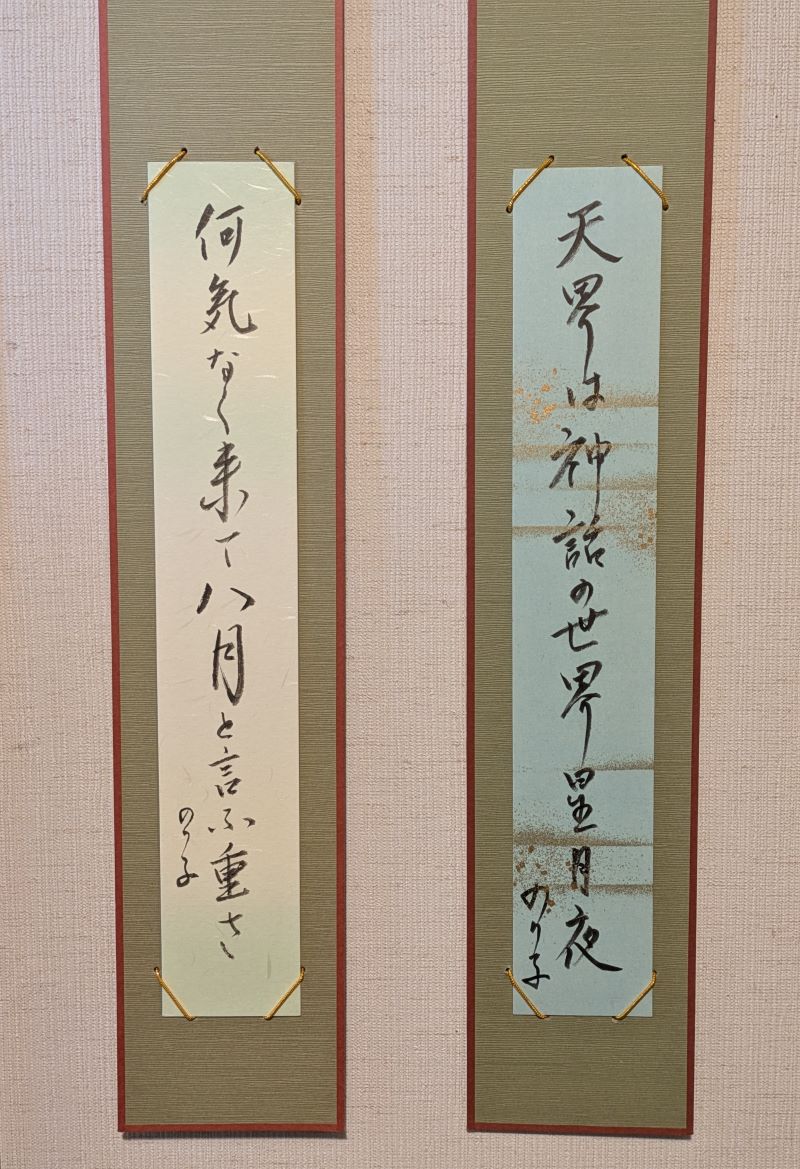 天界は神話の世界星月夜
のり子
何気なく来て八月と言ふ重さ
のり子